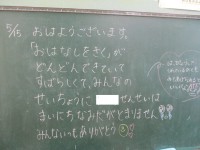 5/15 おはようございます。
「おはなしをきく」が、
どんどんできていて
すばらしくて、みんなの
せいちょうに せんせいは
まいにちなみだがとまりません
みんないつもありがとう